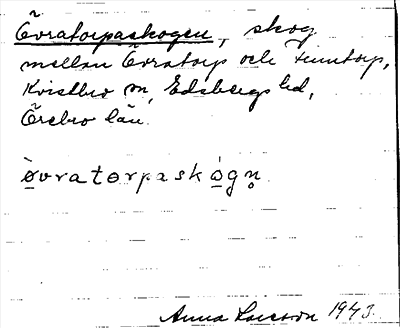 Övratorpaskogen, skog
mellan Övratorp och Finntorp,
Kvistbro sn, Edsbergs hd,
Örebro län.
òvratorpaskógn̥
Anna Larsson 1943.